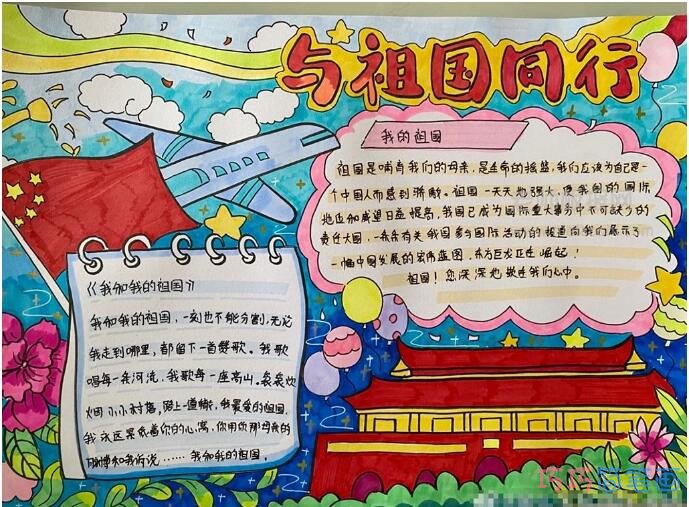 与祖国同行
我的祖国
祖国是哺育我们的母亲，是生命的摇篮，我们应该为自己是一
个中国人而感到骄傲。祖国一天天地强大，使我国的国际
地位和威望日益提高，我国已成为国际重大事务中不可缺少的
责任大国，一条条有关我国参与国际活动的报道向我们展示了
一幅中国发展的宏伟蓝图，东方巨龙正在崛起！
祖国！您深深地嵌在我们心中。
《我和我的祖国》
我和我的祖国，一刻也不能分割，无论
我走到哪里，都留下一首赞歌。我歌
唱每一条河流，我歌每一座高山，袅袅炊
烟小小村落，路上一道辙，我最爱的祖国，
我永远紧依着你的心窝，你用你那母亲的
脉搏和我诉说……我和我的祖国。